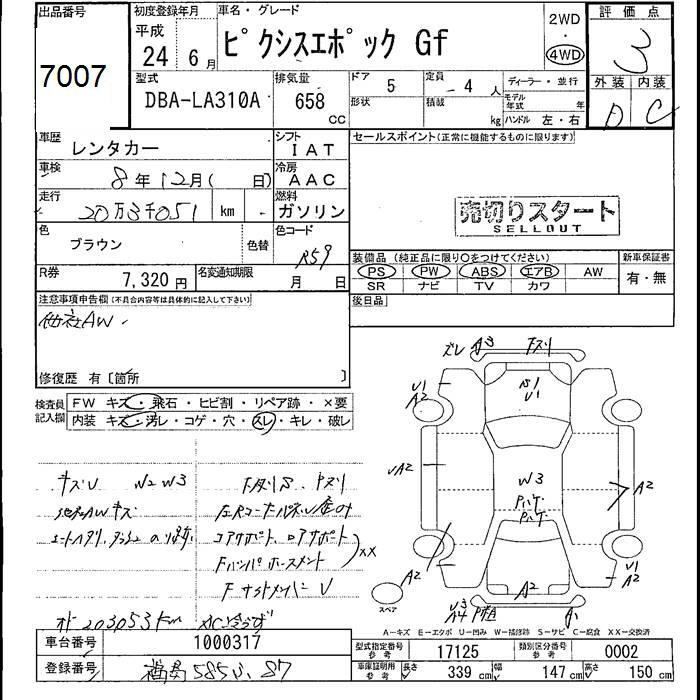 出品番号
7007
初度登録年月
平成
24 6月
車名・グレード
ピクシスエポック Gf
2WD
・
4WD
評価点
3
外装 内装
D C
型式
DBA-LA310A
排気量
658
cc
ドア 5
定員 4 人
形状
積載 kg
ディーラー・並行
モデル年式 年
ハンドル 左・右
車歴
レンタカー
シフト
IAT
車検
8年12月( 日)
冷房
AAC
走行
20万3千051 km
燃料
ガソリン
色
ブラウン
色替
色コード
R59
R券
7,320円
名変通知期限
月 日
セールスポイント(正常に機能するものに限ります)
売切りスタート
SELLOUT
装備品 (純正品に限り○をつけてください)
PS PW ABS エアB AW
SR ナビ TV カワ
新車保証書
有・無
後日品
注意事項申告欄(不具合内容等は具体的に記入して下さい)
他社AW.
修復歴 有〔箇所 〕
検査員記入欄
FW キズ・飛石・ヒビ割・リペア跡・×要
内装 キズ・汚レ・コゲ・穴・スレ・キレ・破レ
キズU W2 W3
他社AWキズ
コアサポート、ロアサポート
XX
Fバンパホースメント
FサイドメンバーU
メーター 203053km AC冷えず
ズレ A3 Fズリ
U1
A2
S1
U1
UA2
W3
A2
A2
A2
U2
A2
U3
A4
A1
スペア
A-キズ E-エクボ U-凹み W-補修跡 S-サビ C-腐食 XX-交換済
車台番号
1000317
登録番号
福島585ふ.87
型式指定番号
参考
17125
類別区分番号
参考
0002
車庫証明用
参考
長さ 339cm 幅 147cm 高さ 150cm